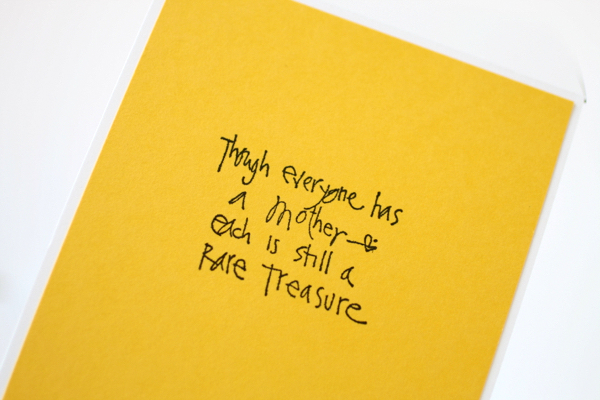 Though everyone has
a mother
each is still a
Rare Treasure